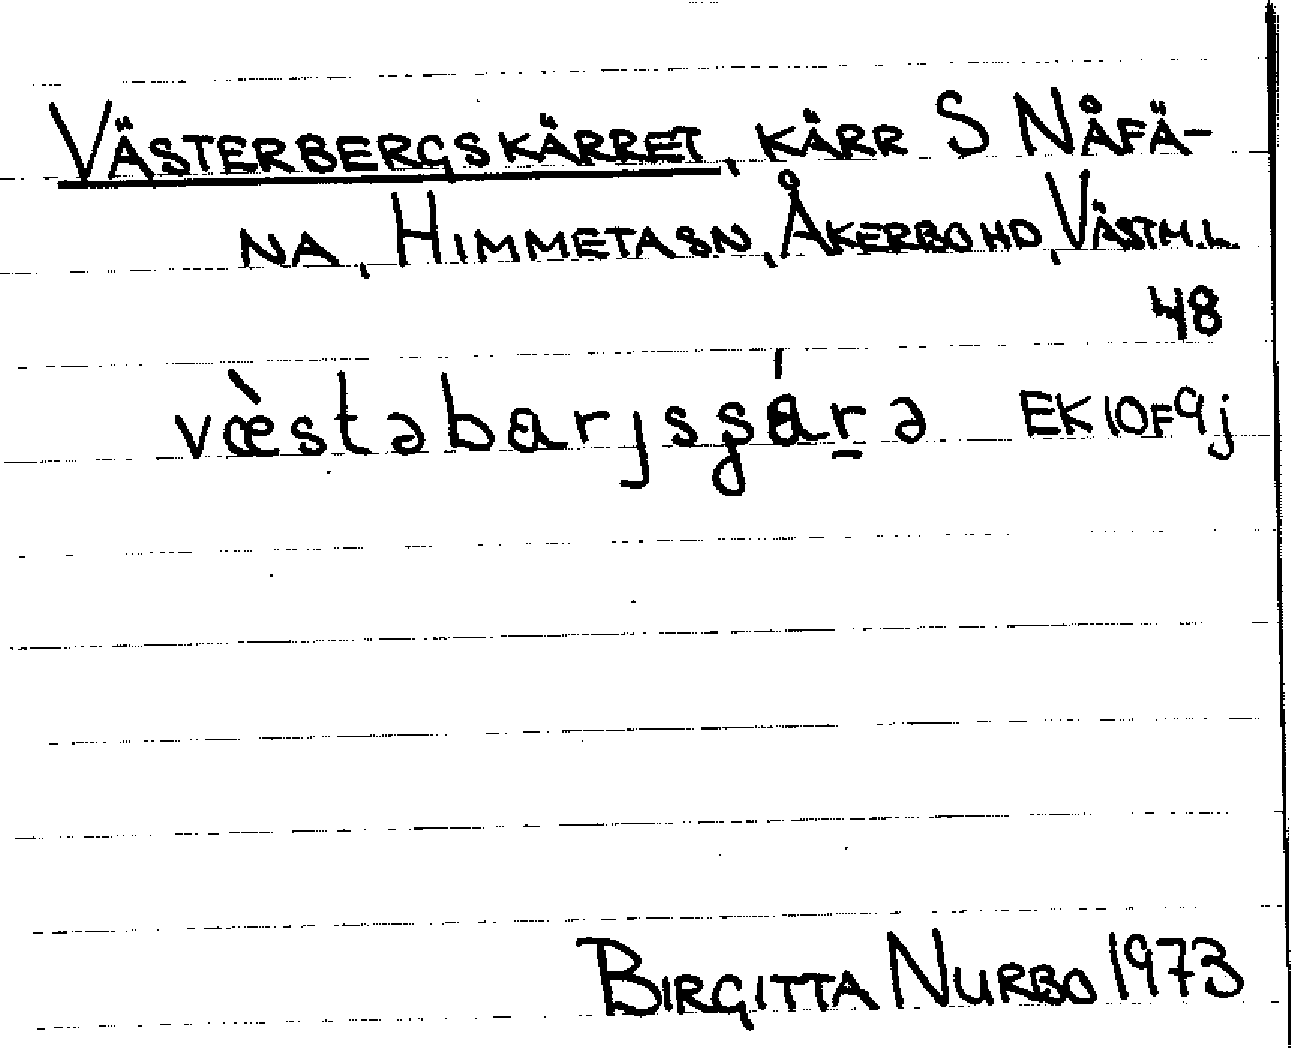 VÄSTERBERGSKÄRRET, KÄRR S NÅFÄ-
NA, HIMMETA SN, ÅKERBO HD, VÄSTM.L.
48
væ̀stəbarjsgárə EK10F9j
BIRGITTA NURBO 1973